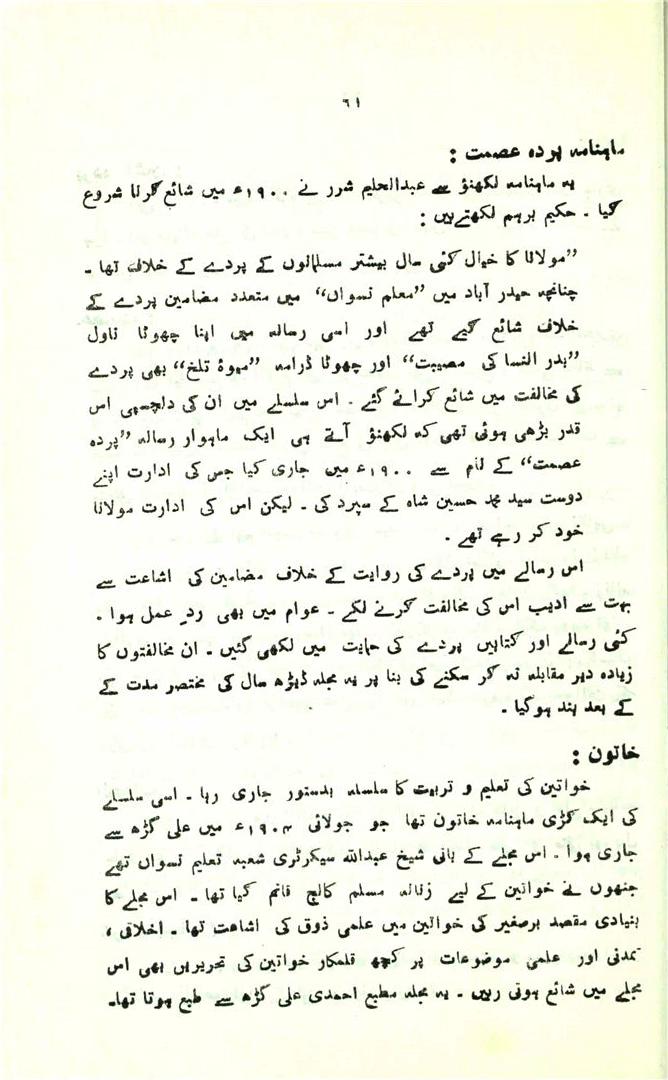 ۶۱
ماہنامہ پردہ عصمت :
یہ ماہنامہ لکھنؤ سے عبدالحلیم شرر نے ۱۹۰۰ء میں شائع کرنا شروع
کیا ۔ حکیم برہم لکھتے ہیں :
”مولانا کا خیال کئی سال پیشتر مسلمانوں کے پردے کے خلاف تھا ۔
چنانچہ حیدر آباد میں ”معلم نسواں“ میں متعدد مضامین پردے کے
خلاف شائع کیے تھے اور اسی رسالہ میں اپنا چھوٹا ناول
”بدر النسا کی مصیبت“ اور چھوٹا ڈرامہ ”میوۂ تلخ“ بھی پردے
کی مخالفت میں شائع کرائے گئے ۔ اس سلسلے میں ان کی دلچسپی اس
قدر بڑھی ہوئی تھی کہ لکھنؤ آتے ہی ایک ماہوار رسالہ ”پردہ
عصمت“ کے نام سے ۱۹۰۰ء میں جاری کیا جس کی ادارت اپنے
دوست سید محمد حسین شاہ کے سپرد کی ۔ لیکن اس کی ادارت مولانا
خود کر رہے تھے ۔
اس رسالے میں پردے کی روایت کے خلاف مضامین کی اشاعت سے
بہت سے ادیب اس کی مخالفت کرنے لگے ۔ عوام میں بھی ردِ عمل ہوا ۔
کئی رسالے اور کتابیں پردے کی حمایت میں لکھی گئیں ۔ ان مخالفتوں کا
زیادہ دیر مقابلہ نہ کر سکنے کی بنا پر یہ مجلہ ڈیڑھ سال کی مختصر مدت کے
کے بعد بند ہوگیا ۔
خاتون :
خواتین کی تعلیم و تربیت کا سلسلہ بدستور جاری رہا ۔ اسی سلسلے
کی ایک کڑی ماہنامہ خاتون تھا جو جولائی ۱۹۰۴ء میں علی گڑھ سے
جاری ہوا ۔ اس مجلے کے بانی شیخ عبداللہ سیکرٹری شعبہ تعلیم نسواں تھے
جنھوں نے خواتین کے لیے زنانہ مسلم کالج قائم کیا تھا ۔ اس مجلے کا
بنیادی مقصد برصغیر کی خواتین میں علمی ذوق کی اشاعت تھا ۔ اخلاقی ،
تمدنی اور علمی موضوعات پر کچھ قلمکار خواتین کی تحریریں بھی اس
مجلے میں شائع ہوتی رہیں ۔ یہ مجلہ مطبع احمدی علی گڑھ سے طبع ہوتا تھا۔